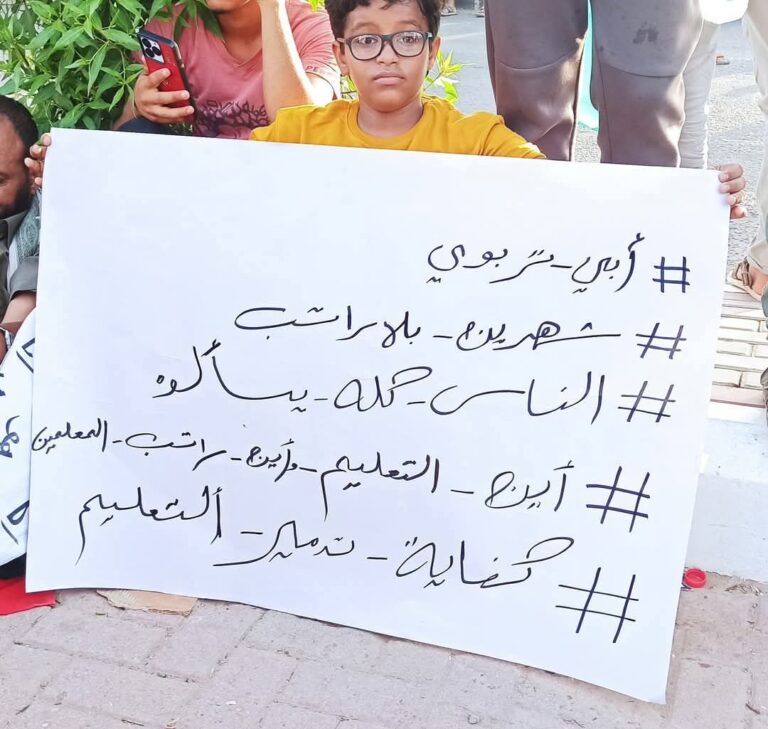 #أبي_تربوي
#شهرين_بلا_راتب
#الناس_كله_يسألوه
#أين_التعليم_وأين_راتب_المعلمين
#كفاية_تدمير_ألتعليم